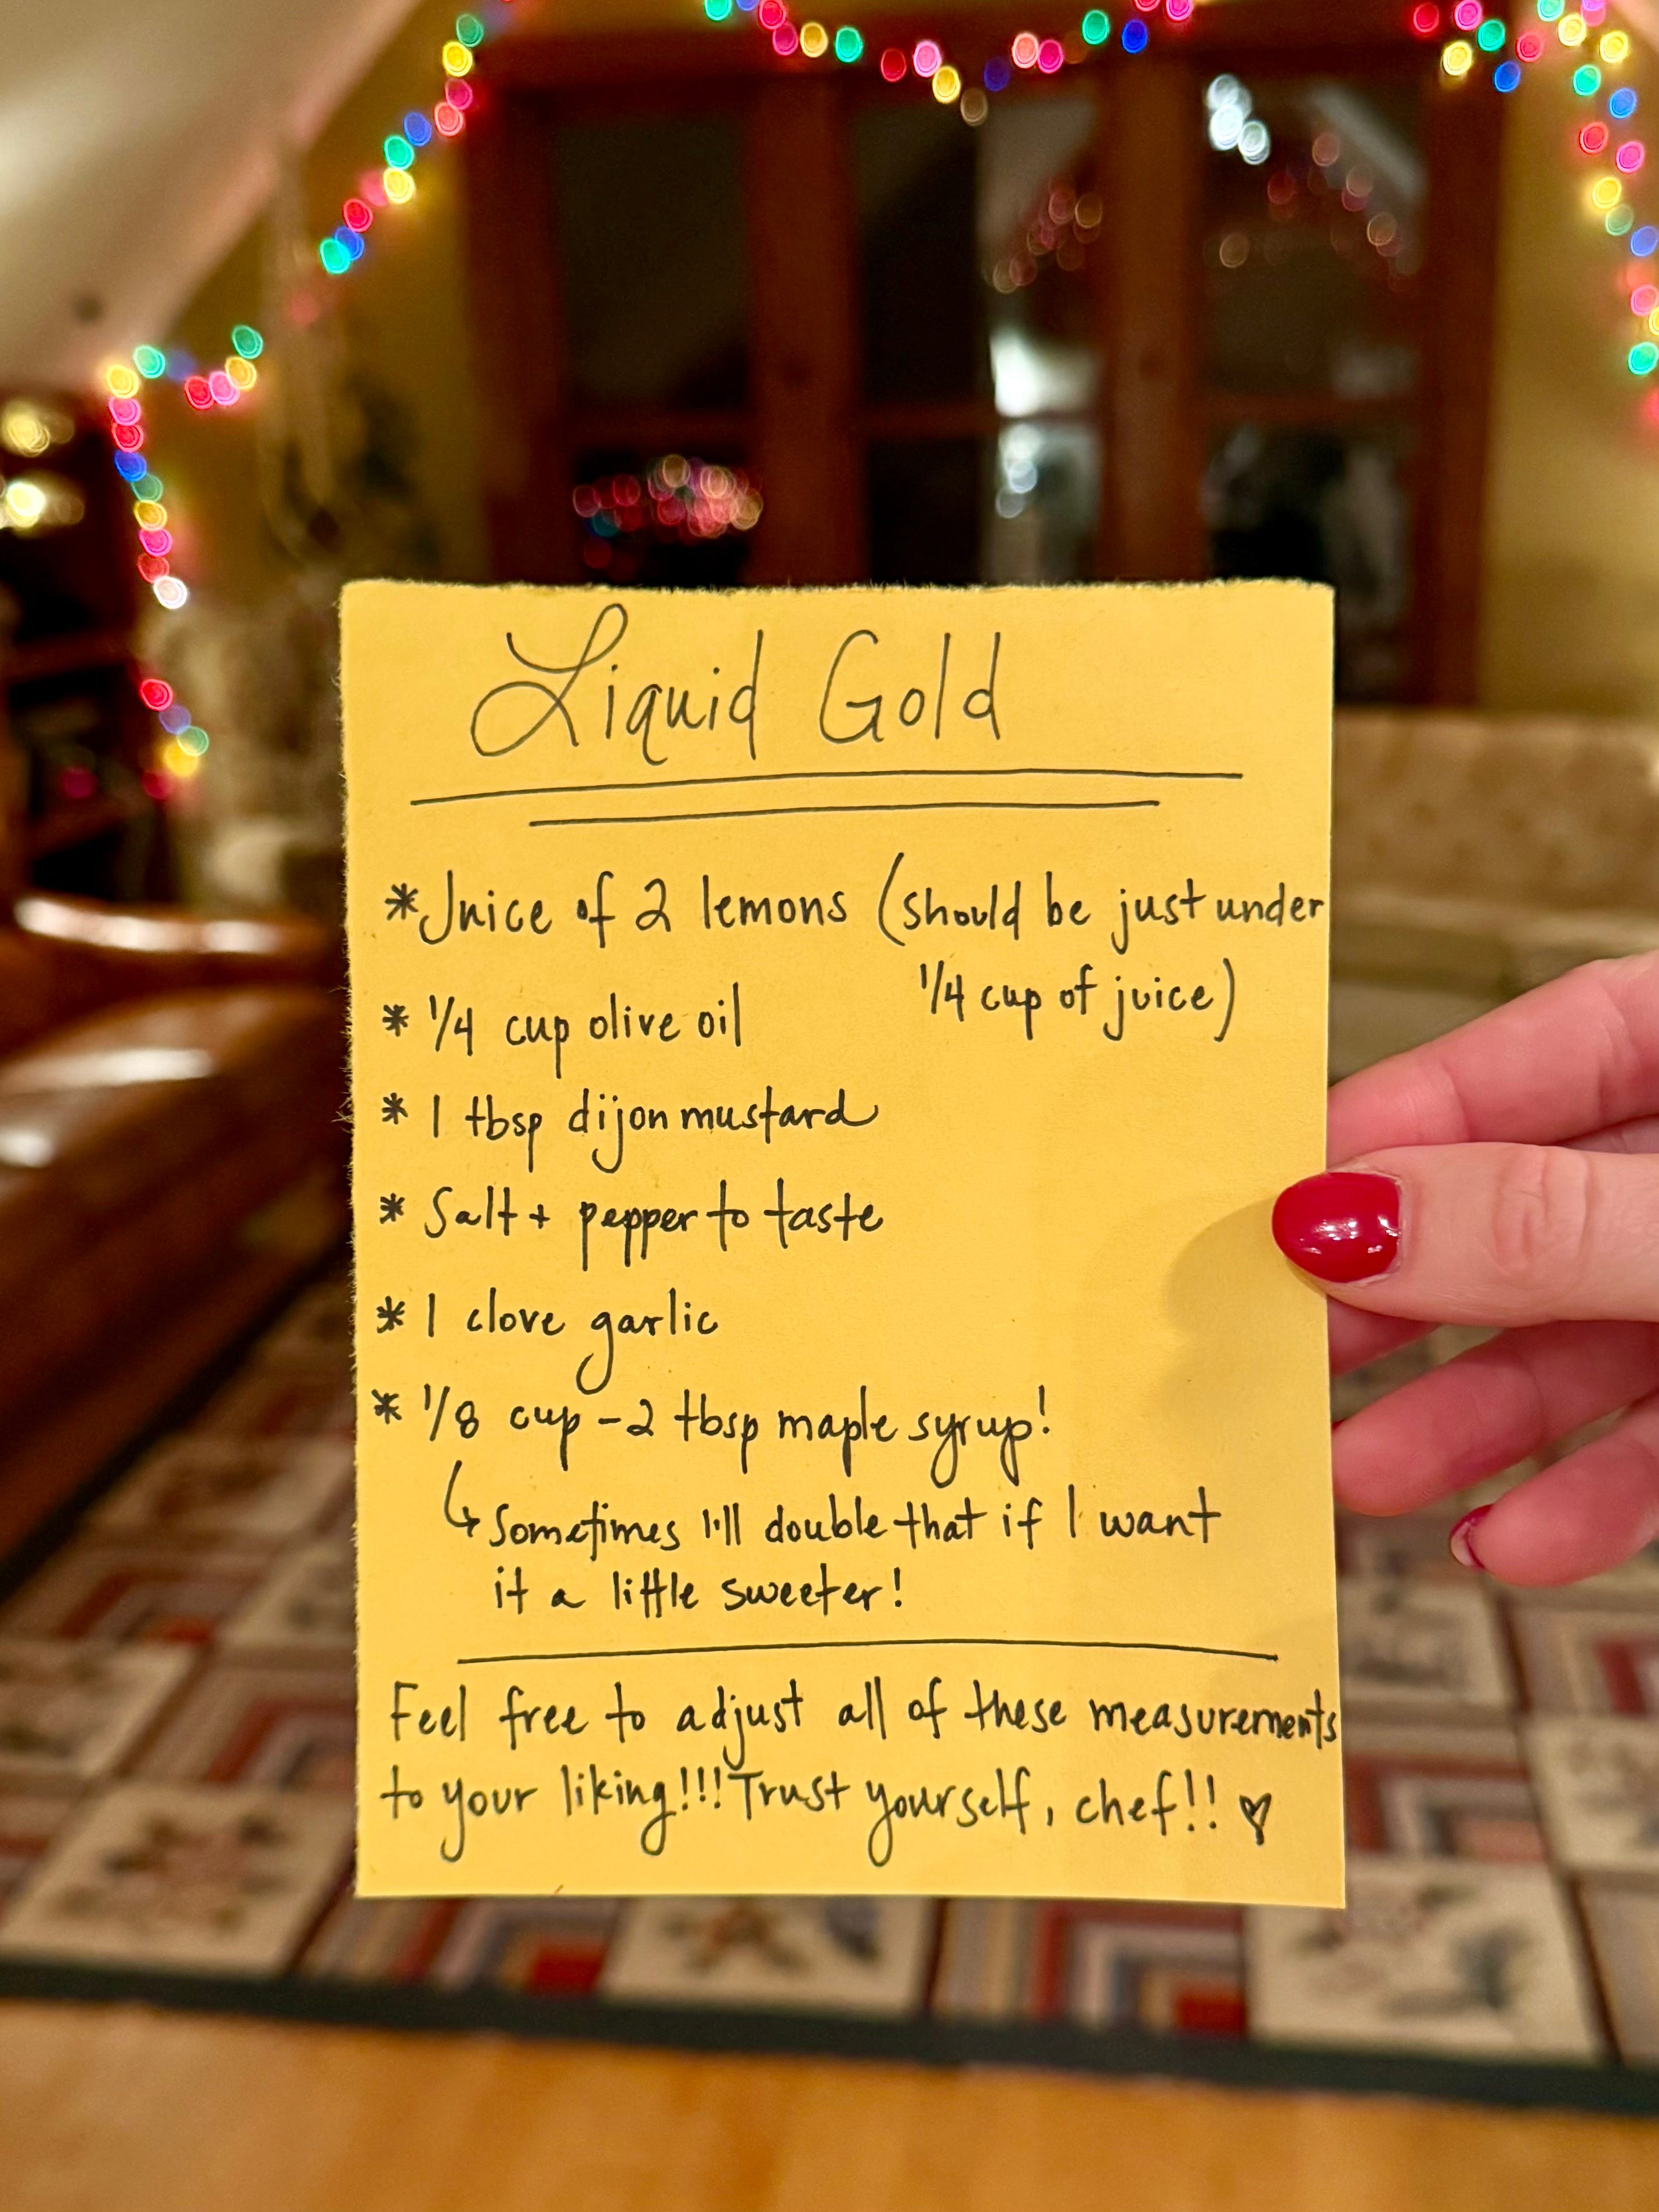 Liquid Gold
* Juice of 2 lemons (should be just under
1/4 cup of juice)
* 1/4 cup olive oil
* 1 tbsp dijon mustard
* Salt + pepper to taste
* 1 clove garlic
* 1/8 cup - 2 tbsp maple syrup!
↳ Sometimes I'll double that if I want
it a little sweeter!
Feel free to adjust all of these measurements
to your liking!!! Trust yourself, chef!! ♡